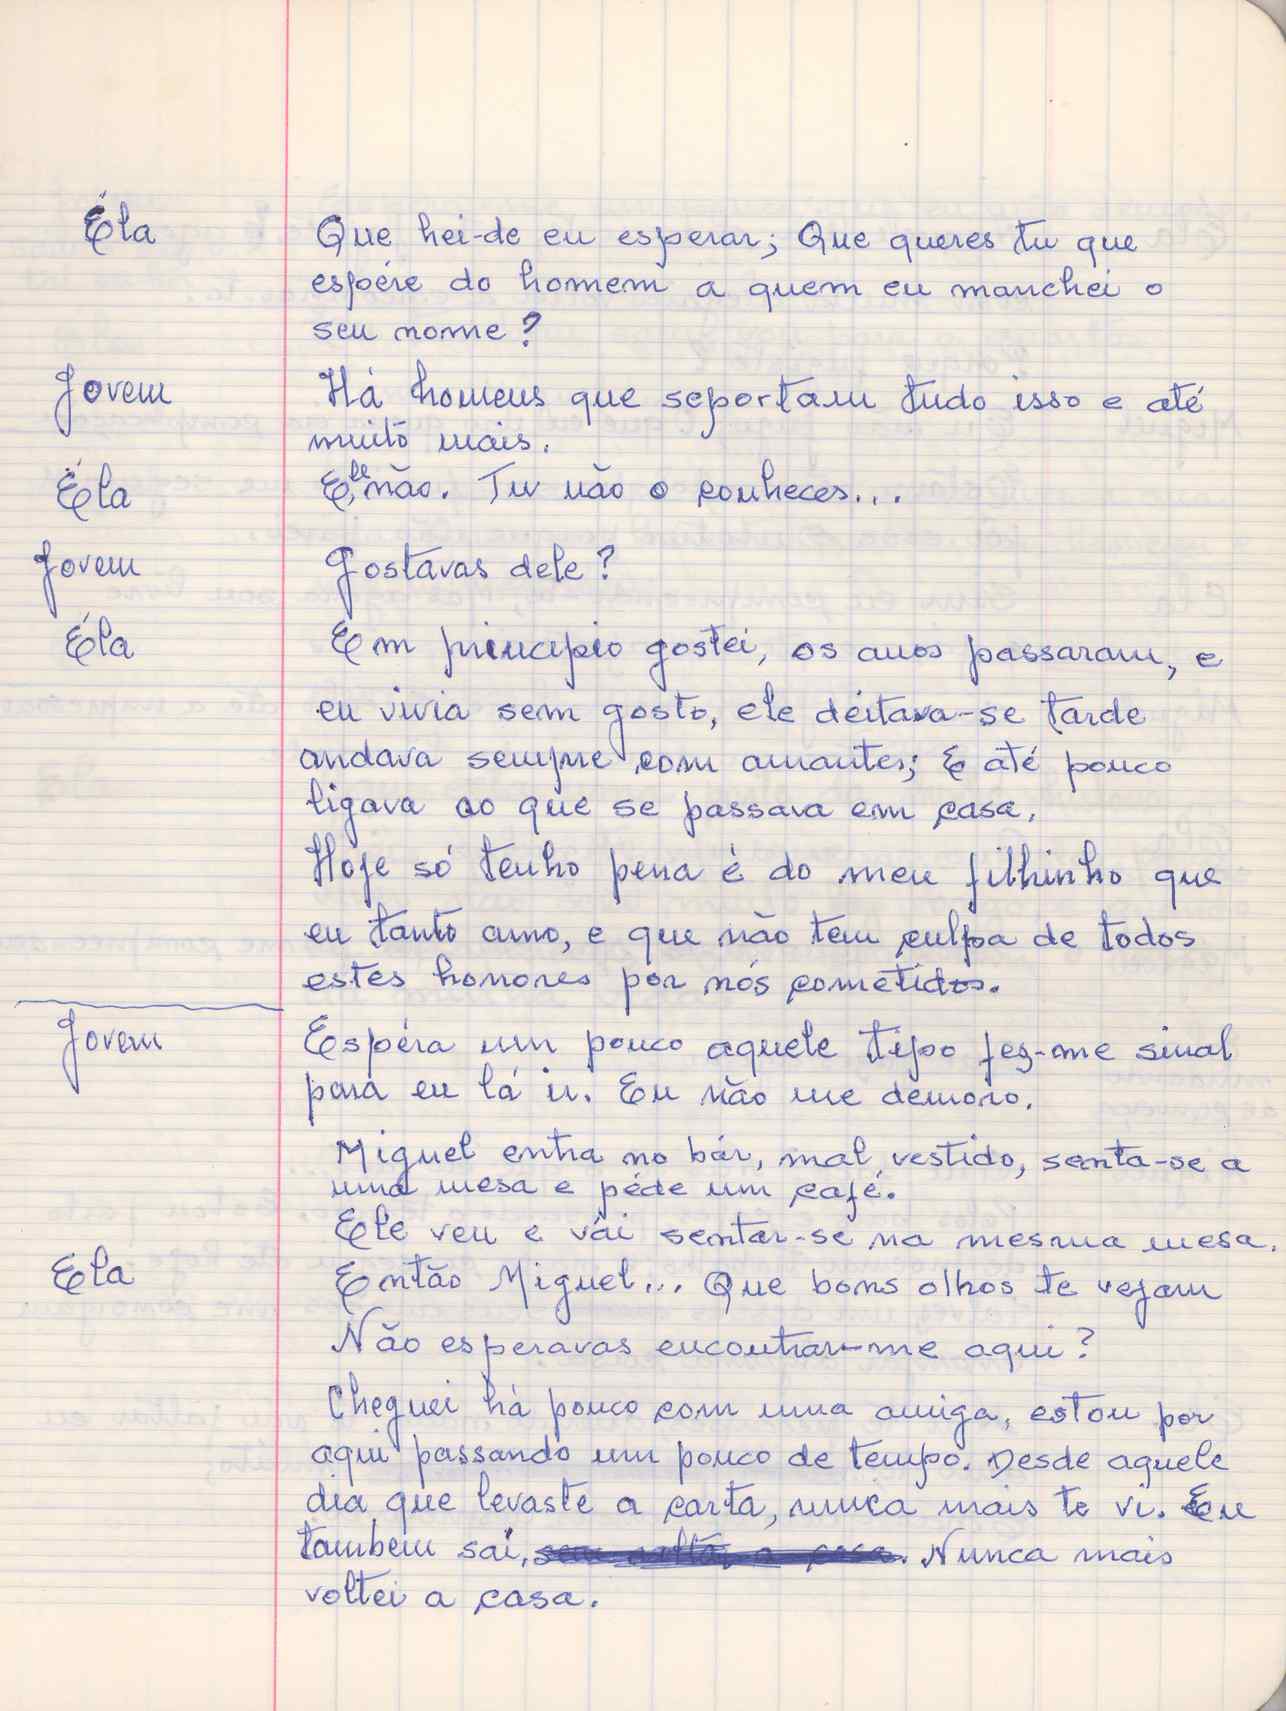 Éla Que hei-de eu esperar; Que queres tu que
espére do homem a quem eu manchei o
seu nome?
Jovem Há homens que seportam tudo isso e até
muito mais.
Éla Ele não. Tu não o conheces...
Jovem Gostavas dele?
Éla Em principio gostei, os anos passaram, e
eu vivia sem gosto, ele deitava-se tarde
andava sempre com amantes; E até pouco
ligava ao que se passava em casa.
Hoje só tenho pena é do meu filhinho que
eu tanto amo, e que não tem culpa de todos
estes horrores por nós cometidos.
Jovem Espéra um pouco aquele tipo fez-me sinal
para eu lá ir. Eu não me demoro.
Miguel entra no bár, mal vestido, senta-se a
uma mesa e péde um café.
Ele veu e vai sentar-se na mesma mesa.
Ela Então Miguel... Que bons olhos te vejam
Não esperavas encontrar-me aqui?
Cheguei há pouco com uma amiga, estou por
aqui passando um pouco de tempo. Desde aquele
dia que levaste a carta, nunca mais te vi. Eu
tambem saí, . Nunca mais
voltei a casa.